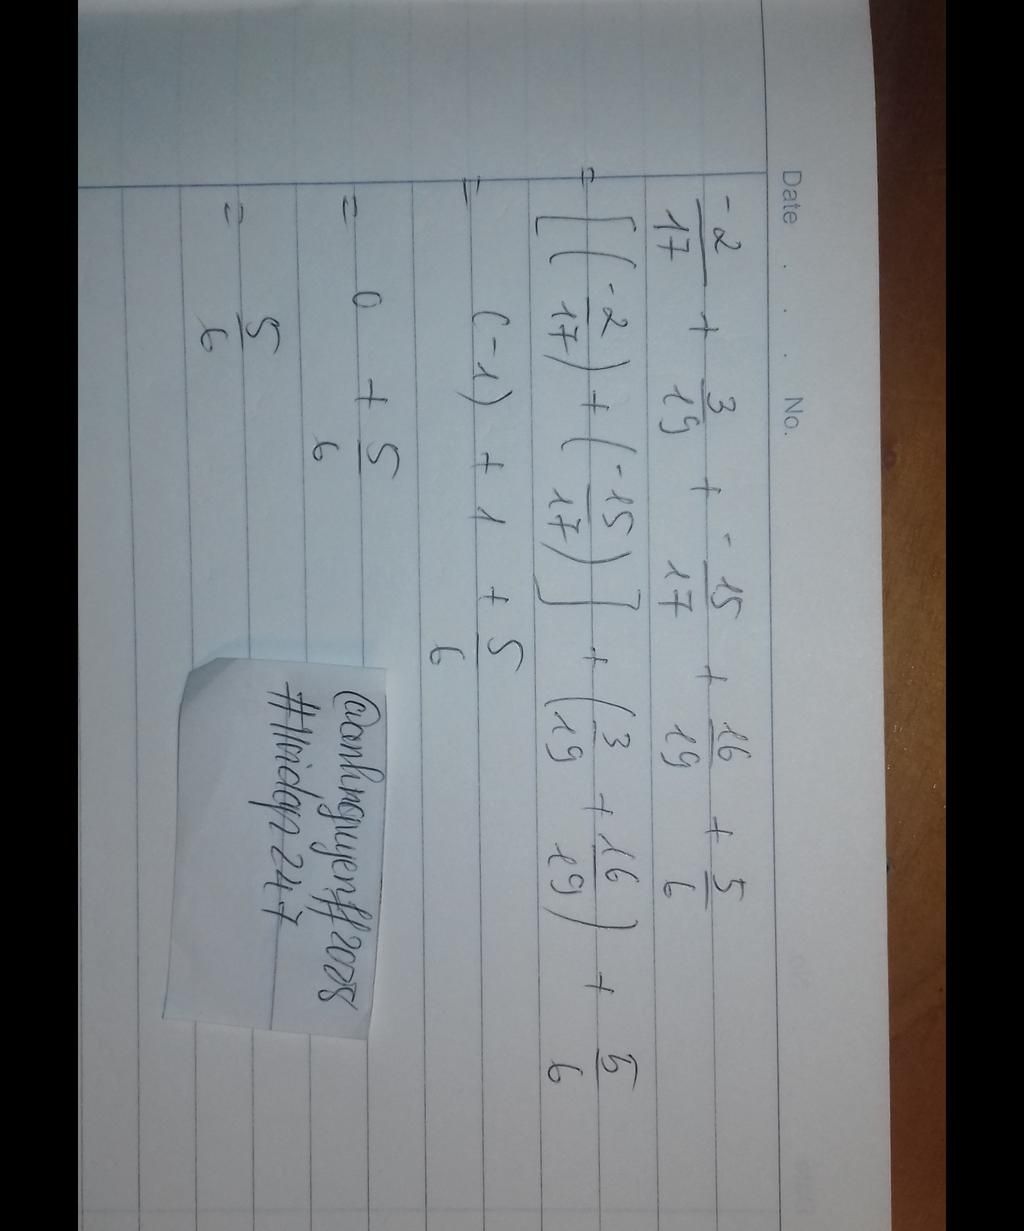 Date . . . No.
-2/17 + 3/19 + -15/17 + 16/19 + 5/6
= [(-2/17) + (-15/17)] + (3/19 + 16/19) + 5/6
= (-1) + 1 + 5/6
= 0 + 5/6
= 5/6
@anhnguyenff2008
#Hoidap247